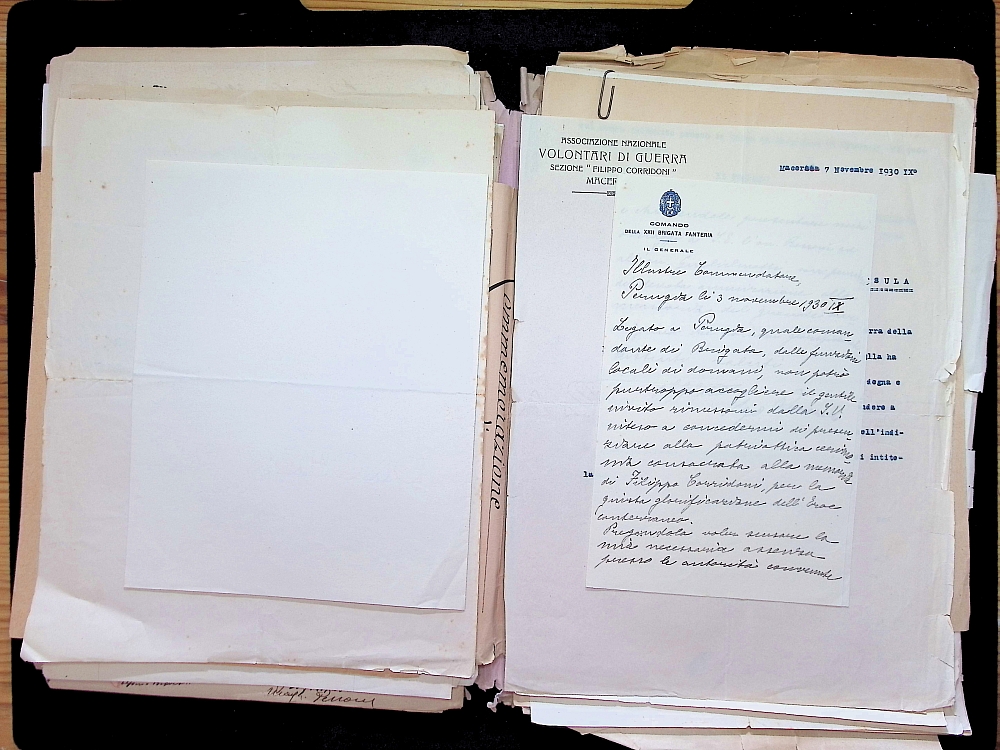 ASSOCIAZIONE NAZIONALE
VOLONTARI DI GUERRA
SEZIONE "FILIPPO CORRIDONI"
MACER
Macerata 7 Novembre 1930 IX°
COMANDO
DELLA XXII BRIGATA FANTERIA
IL GENERALE
Illustre Commendatore,
Perugia li 3 novembre 1930 IX
Legato a Perugia, quale coman
dante di Brigata, dalle funzioni
locali di domani, non potrò
purtroppo accogliere il gentile
invito rimessomi dalla S.V.
inteso a concedermi di presen
ziare alla patriottica cerimo
nia consacrata alla memoria
di Filippo Corridoni, per la
giusta glorificazione dell'Eroe
conterraneo.
Pregandola voler scusare la
mia necessaria assenza
presso le autorità convenute
SULA
rra della
lla ha
degna e
ndere a
ell'indi-
i intite-
la
ommemorazione